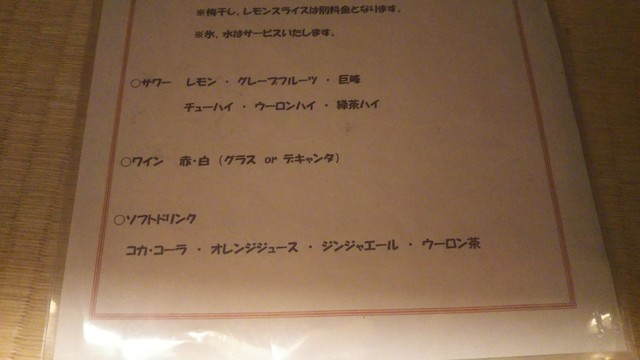 ※梅干し、レモンスライスは別料金となります。
※氷、水はサービスいたします。
○サワー レモン ・ グレープフルーツ ・ 巨峰
チューハイ ・ ウーロンハイ ・ 緑茶ハイ
○ワイン 赤・白 (グラス or デキャンタ)
○ソフトドリンク
コカ・コーラ ・ オレンジジュース ・ ジンジャエール ・ ウーロン茶